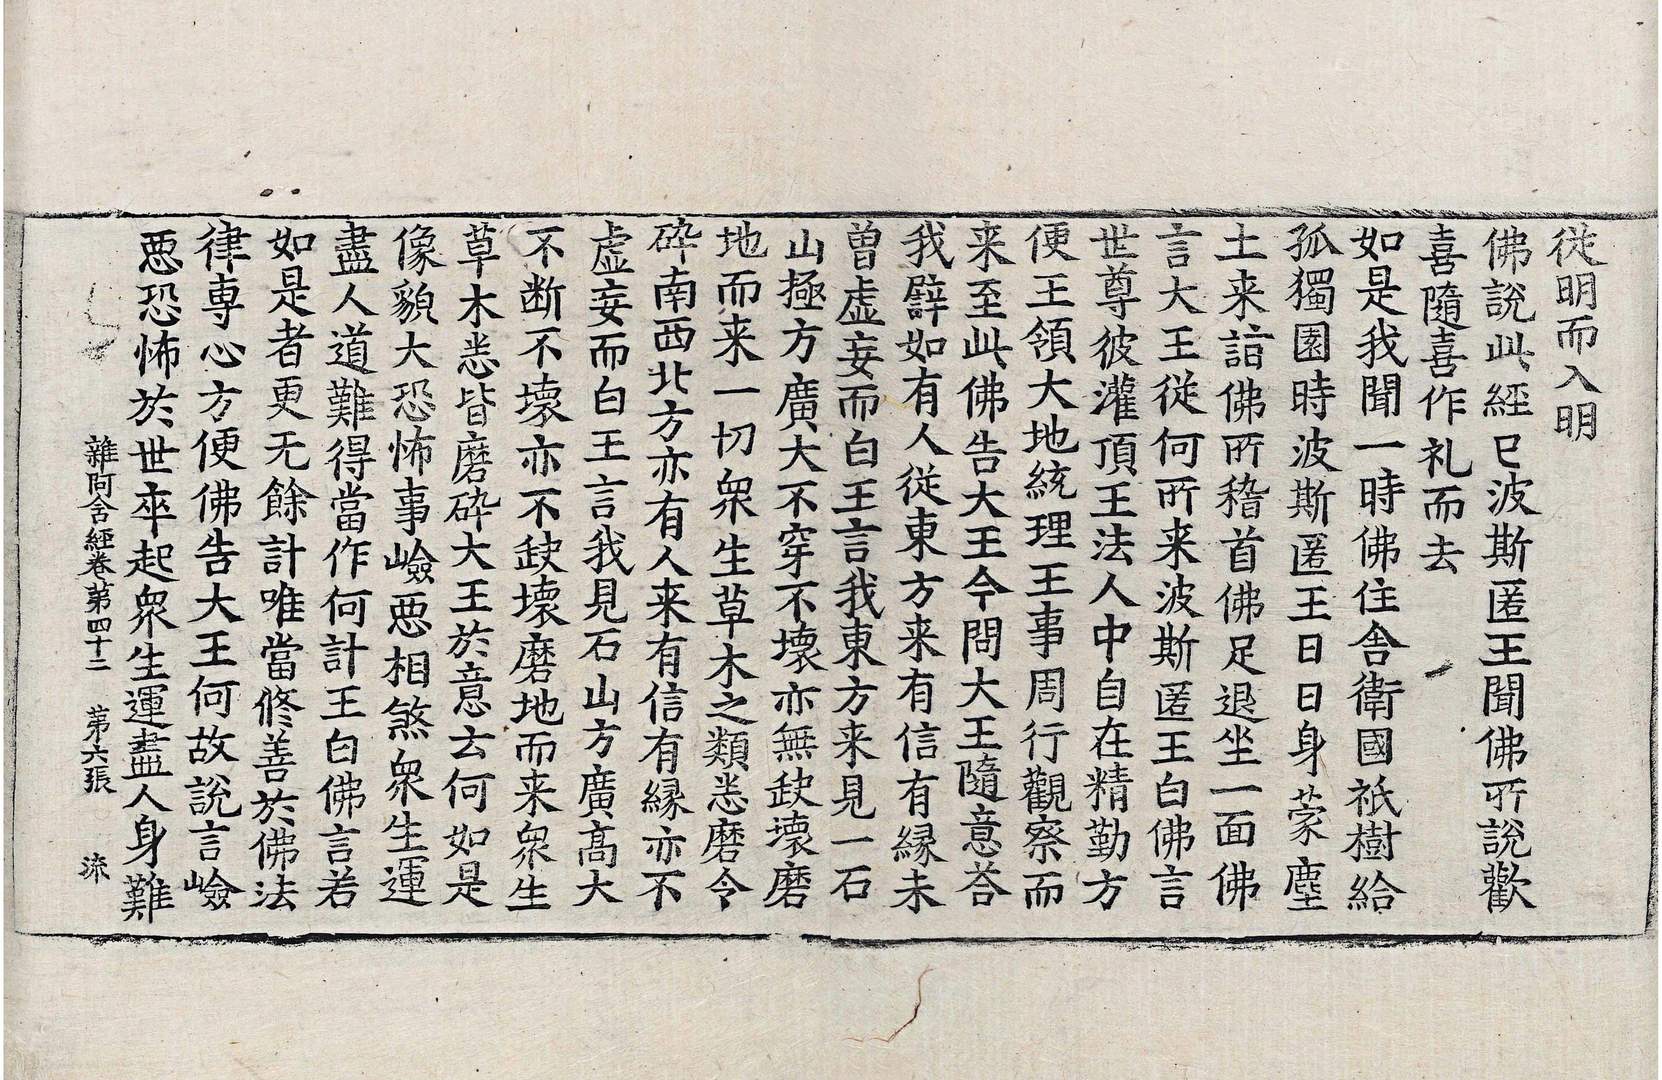 從明而入明
佛說此經已波斯匿王聞佛所說歡
喜隨喜作礼而去
如是我聞一時佛住舍衛國祇樹給
孤獨園時波斯匿王日日身蒙塵
土来詣佛所稽首佛足退坐一面佛
言大王從何所来波斯匿王白佛言
世尊彼灌頂王法人中自在精勤方
便王領大地統理王事周行觀察而
来至此佛告大王今問大王隨意荅
我譬如有人從東方来有信有縁未
曾虛妄而白王言我東方来見一石
山極方廣大不穿不壞亦無䥫壞磨
地而来一切衆生草木之類悉磨令
碎南西北方亦有人来有信有縁亦不
虛妄而白王言我見石山方廣髙大
不断不壞亦不䥫壞磨地而来衆生
草木悉皆磨碎大王於意云何如是
像貌大恐怖事嶮惡相煞衆生運
盡人道難得當作何計王白佛言若
如是者更无餘計唯當修善於佛法
律専心方便佛告大王何故說言嶮
惡恐怖於世卒起衆生運盡人身難
雜阿含經卷第四十二 第六張 流